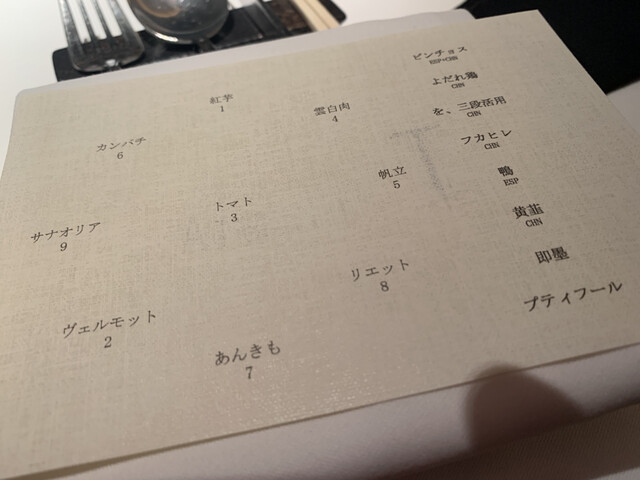 紅芋
1
雲白肉
4
カンバチ
6
帆立
5
トマト
3
サナオリア
9
リエット
8
ヴェルモット
2
あんきも
7
ピンチョス
ESP×CHN
よだれ鶏
CHN
を、三段活用
CHN
フカヒレ
CHN
鴨
ESP
黄韮
CHN
即墨
プティフール